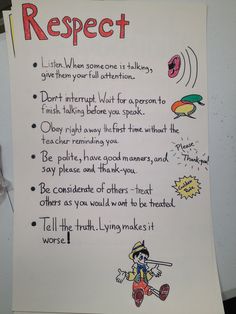 Respect
Listen. When someone is talking,
give them your full attention.
Don't interrupt. Wait for a person to
finish talking before you speak.
Obey right away the first time without the
teacher reminding you.
Please
Thank you!
Be polite, have good manners, and
say please and thank-you.
Be considerate of others - treat
others as you would want to be treated.
Golden
Rule
Tell the truth. Lying makes it
worse!